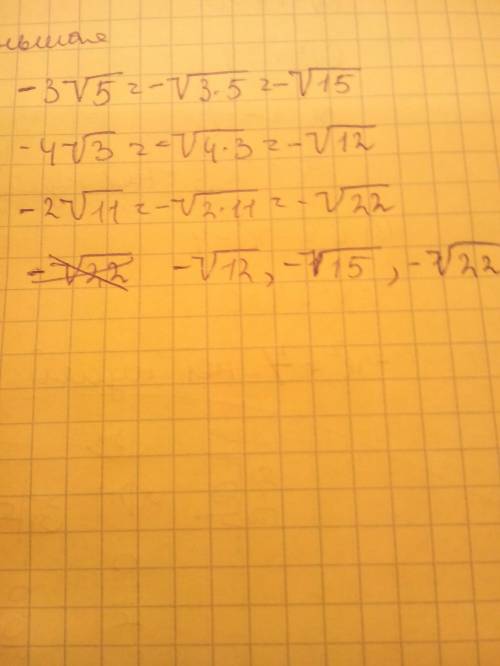 -3√5 = -√3·5 = -√15
-4√3 = -√4·3 = -√12
-2√11 = -√2·11 = -√22
-√22 -√12, -√15, -√22